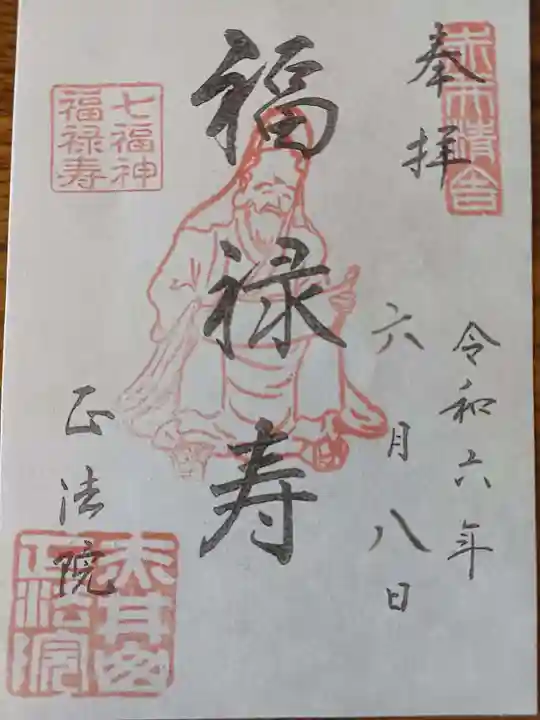 奉拝
令和六年
六月八日
福禄寿
七福神
福禄寿
正法院
正法院